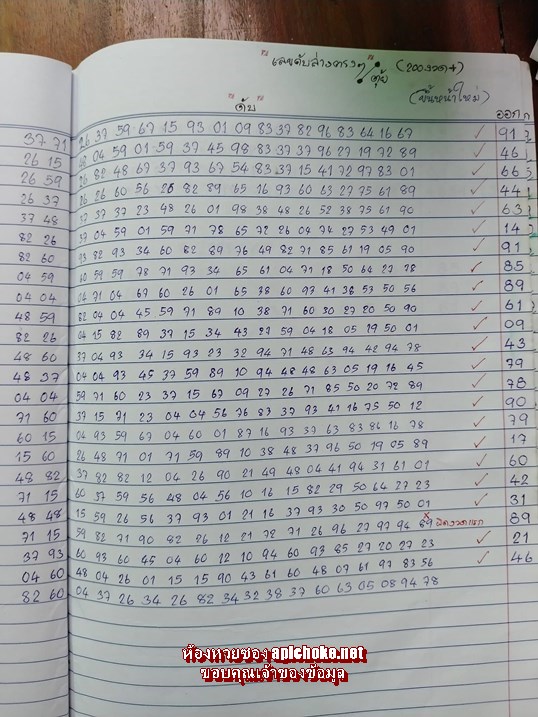 "เลขดับล่างตรงๆ" (200งวด+)
"ดับ" (ขึ้นหน้าใหม่)
ออก
37 71 26 37 59 67 15 93 01 09 83 37 82 96 83 64 16 67 ✓ 91
26 15 48 04 59 01 59 37 45 98 83 37 37 96 27 19 72 89 ✓ 46
26 59 26 82 48 67 37 93 67 54 83 37 15 41 72 97 83 01 ✓ 66
26 37 26 26 60 56 26 82 89 65 16 93 60 63 27 75 61 89 ✓ 44
37 48 37 37 37 23 48 26 01 98 38 48 26 52 38 75 61 90 ✓ 63
82 26 37 04 59 01 59 71 78 65 72 26 04 74 27 53 49 01 ✓ 14
82 60 93 82 93 34 60 82 89 76 49 82 71 85 61 19 05 90 ✓ 91
04 59 60 59 59 78 71 93 34 65 61 04 71 18 50 64 27 78 ✓ 85
04 04 04 71 04 67 60 26 01 65 38 60 97 41 38 53 50 56 ✓ 89
48 59 82 04 04 45 59 71 89 10 38 71 60 30 27 20 50 90 ✓ 61
82 26 04 15 82 89 37 15 34 43 27 59 04 18 05 19 50 01 ✓ 09
48 60 37 04 93 34 15 93 23 32 94 71 48 63 94 42 94 78 ✓ 43
48 37 04 04 93 45 37 59 89 10 94 48 48 63 05 19 16 45 ✓ 79
04 04 59 71 60 23 37 15 67 09 27 26 71 85 50 20 72 89 ✓ 78
71 60 37 15 71 23 04 04 56 76 83 37 93 41 16 75 50 12 ✓ 90
60 15 04 93 59 67 04 60 01 87 16 93 37 63 83 86 16 78 ✓ 79
15 60 26 48 71 01 71 59 89 10 38 48 37 96 50 19 05 89 ✓ 17
48 82 37 82 82 12 04 26 90 21 49 48 04 41 94 31 61 01 ✓ 60
71 15 60 37 59 56 48 04 56 10 16 15 82 29 50 64 27 23 ✓ 42
48 48 15 59 26 56 37 93 01 21 16 37 93 30 50 97 50 01 ✓ 31
71 15 59 82 71 90 82 26 12 21 72 71 26 96 27 97 94 89 × ผิดงวดแรก 89
37 93 60 93 60 45 04 60 12 10 94 60 93 85 27 20 27 23 ✓ 21
04 60 48 04 26 01 15 15 90 43 61 60 48 07 61 97 83 56 ✓ 46
82 60 04 37 26 34 26 82 34 32 38 37 60 63 05 08 94 78
ห้องหวยซอง apichoke.net
ขอบคุณเจ้าของข้อมูล